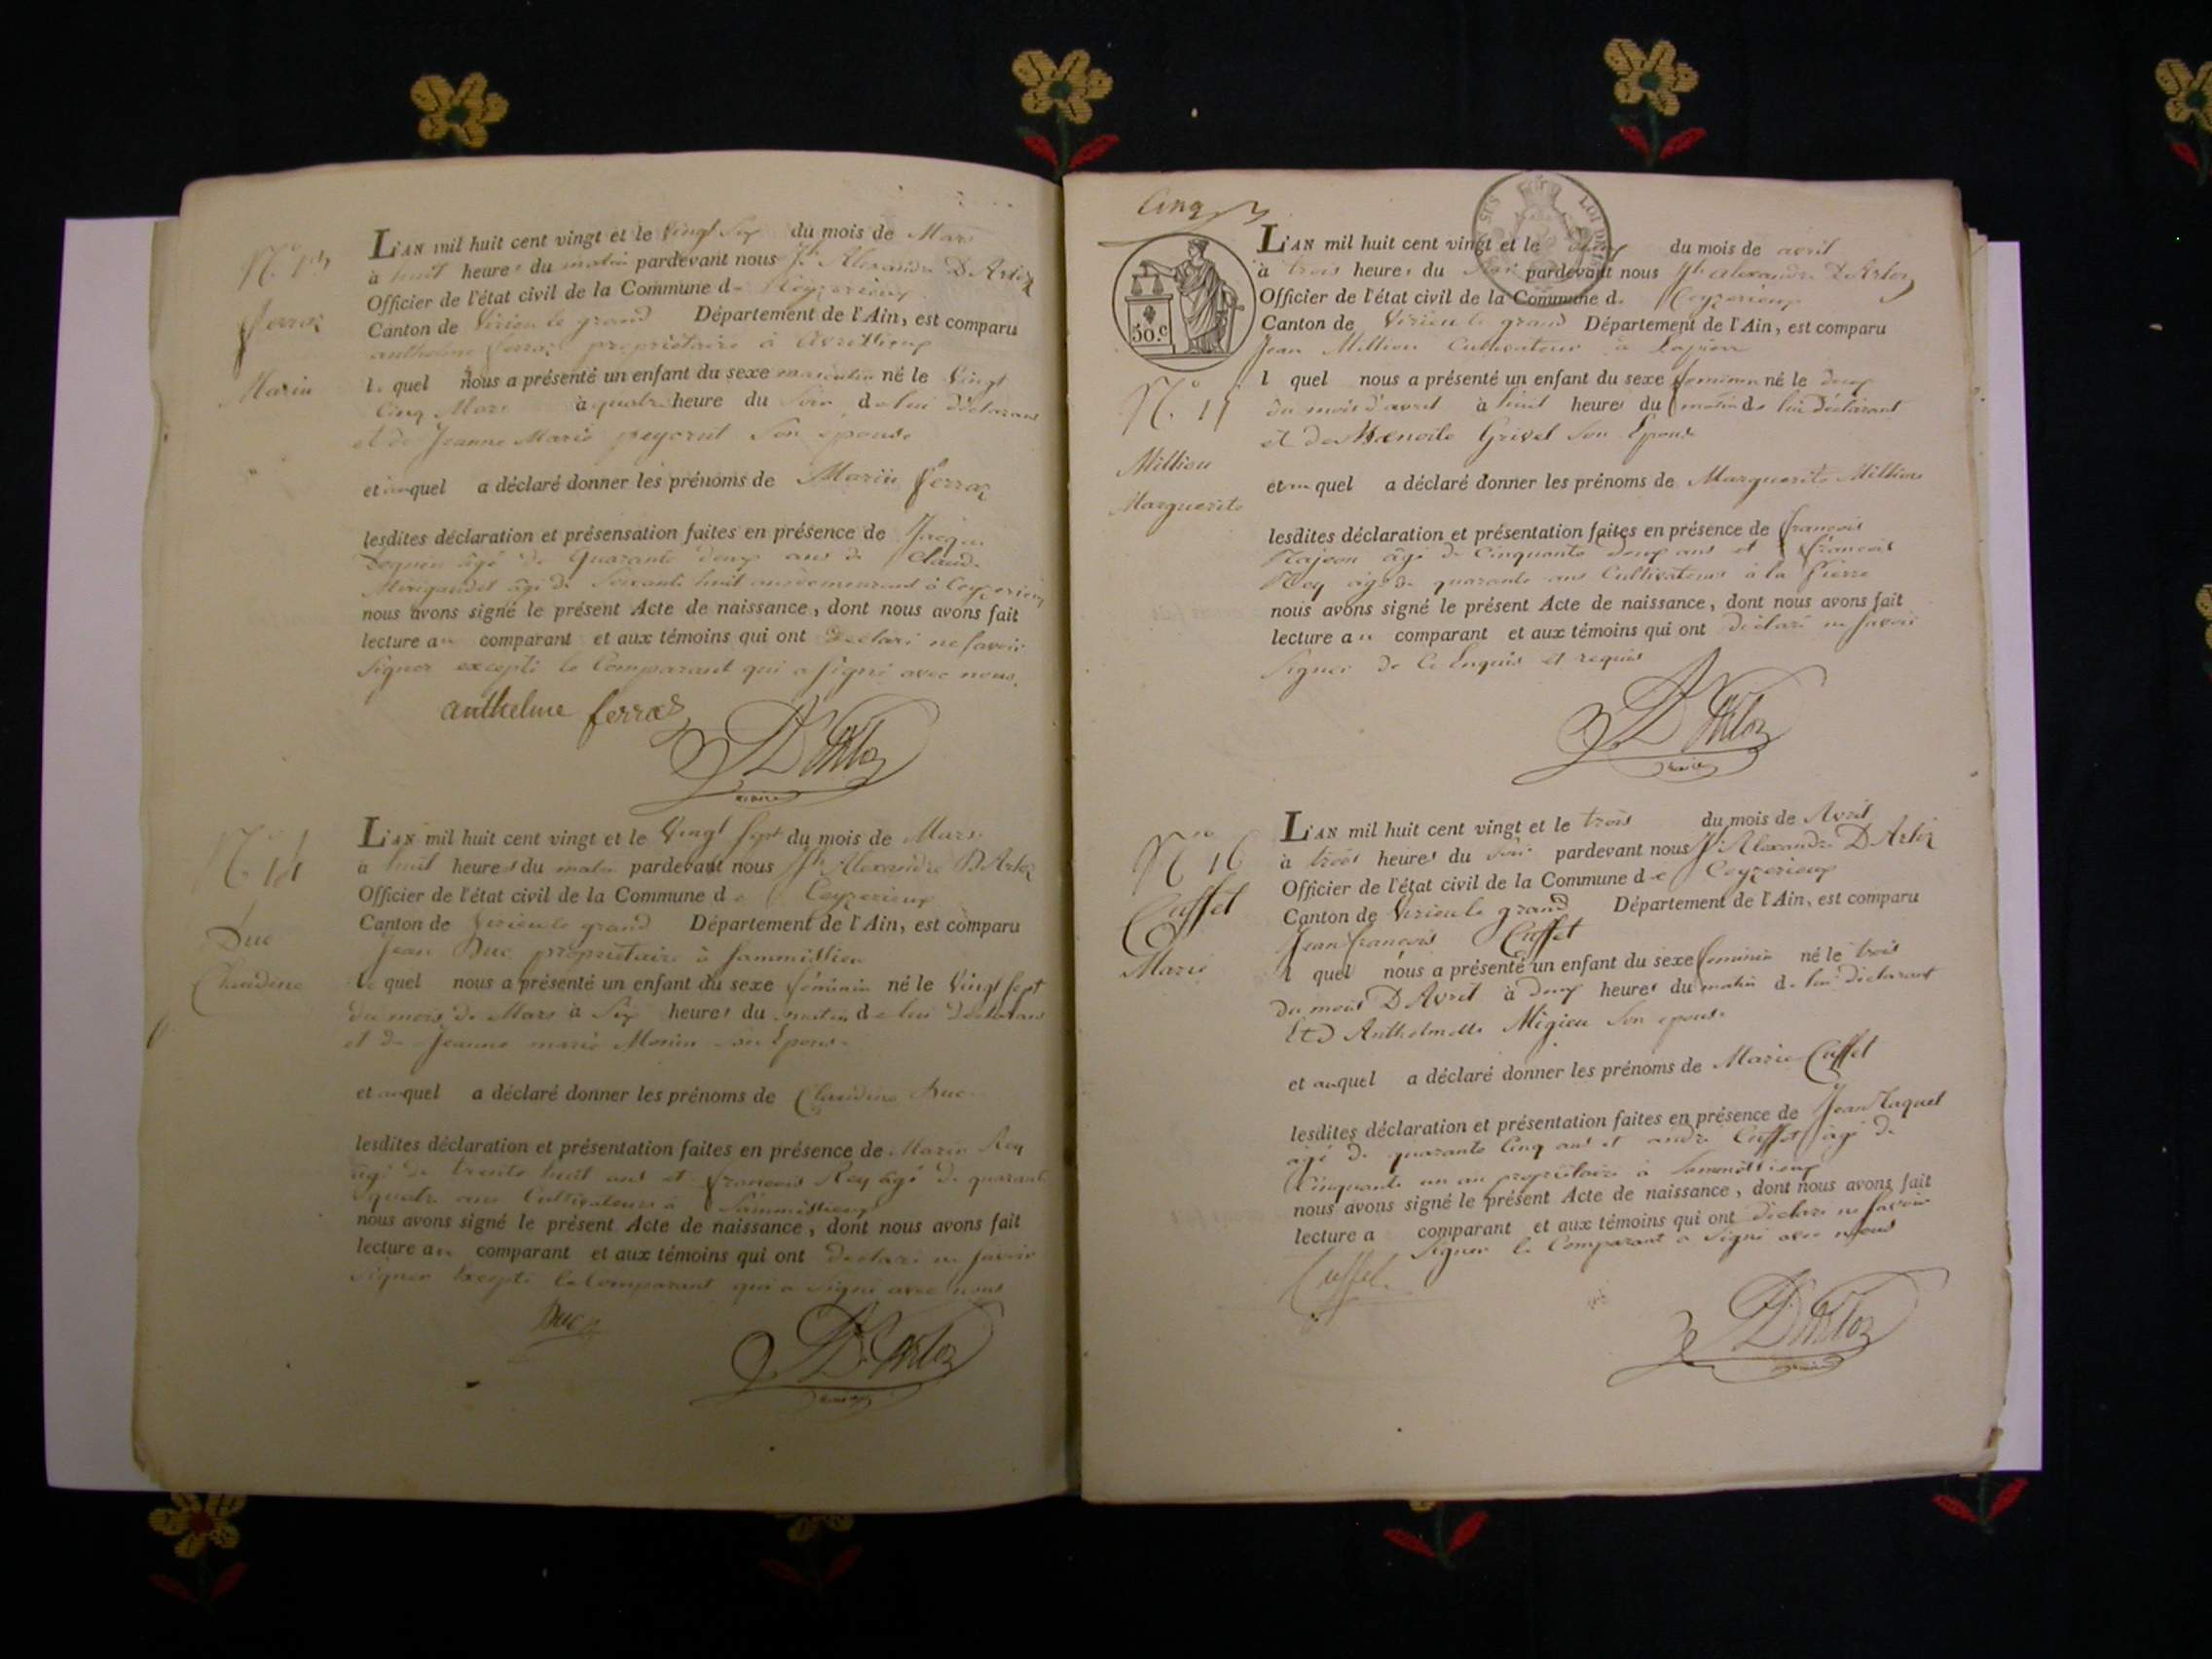 N.° 13
ferraz
Marin
L'AN mil huit cent vingt et le Vingt Six du mois de Mars
à huit heures du matin pardevant nous Jh Alexandre D'Artoz
Officier de l'état civil de la Commune de Ceyzerieux
Canton de Virieu le grand Département de l'Ain, est comparu
anthelme ferraz propriétaire à avrissieux
le quel nous a présenté un enfant du sexe masculin né le Vingt
Cinq Mars à quatre heure du Soir de lui déclarant
et de Jeanne Marie peyerut Son epouse
et auquel a déclaré donner les prénoms de Marin ferraz
lesdites déclaration et présensation faites en présence de Jacques
âgé de Quarante deux ans de Claude
âgé de Soixante huit ans demeurant à Ceyzerieux
nous avons signé le présent Acte de naissance, dont nous avons fait
lecture au comparant et aux témoins qui ont Declaré ne savoir
Signer excepté le Comparant qui a signé avec nous.
anthelme ferraz
D'Artoz
maire
N.° 14
Duc
Claudine
L'AN mil huit cent vingt et le Vingt Sept du mois de Mars
à huit heures du matin pardevant nous Jh Alexandre D'Artoz
Officier de l'état civil de la Commune de Ceyzerieux
Canton de Virieu le grand Département de l'Ain, est comparu
Jean Duc propriétaire à Sammissieu
le quel nous a présenté un enfant du sexe féminin né le Vingt Sept
du mois de Mars à Six heures du matin de lui Déclarant
et de Jeanne marie Monin son Epouse
et auquel a déclaré donner les prénoms de Claudine Duc
lesdites déclaration et présentation faites en présence de Marin Rey
âgé de trente huit ans et françois Rey âgé de quarante
quatre ans Cultivateurs à Sammissieux
nous avons signé le présent Acte de naissance, dont nous avons fait
lecture au comparant et aux témoins qui ont declaré ne savoir
Signer Excepté le Comparant qui a signé avec nous
Duc
D'Artoz
Cinq
50.c
N.° 15
Million
Marguerite
L'AN mil huit cent vingt et le deux du mois de avril
à trois heures du Soir pardevant nous Jh alexandre D'Artoz
Officier de l'état civil de la Commune de Ceyzerieux
Canton de Virieu le grand Département de l'Ain, est comparu
Jean Million Cultivateur à Lapierre
l quel nous a présenté un enfant du sexe feminin né le deux
du mois d'avril à huit heures du matin de lui déclarant
et de Benoite Grivel Son Epouse
et au quel a déclaré donner les prénoms de Marguerite Million
lesdites déclaration et présentation faites en présence de françois
Majeon âgé de Cinquante deux ans et françois
Rey âgé de quarante ans Cultivateurs à la Pierre
nous avons signé le présent Acte de naissance, dont nous avons fait
lecture au comparant et aux témoins qui ont déclaré ne savoir
Signer de Ce Enquis et requis
D'Artoz
maire
N.° 16
Cuffet
Marie
L'AN mil huit cent vingt et le trois du mois de Avril
à trois heures du Soir pardevant nous Jh Alexandre D'Artoz
Officier de l'état civil de la Commune de Ceyzerieux
Canton de Virieu le grand Département de l'Ain, est comparu
Jean françois Cuffet
l quel nous a présenté un enfant du sexe feminin né le trois
du mois D'Avril à deux heures du matin de lui déclarant
Et D Anthelmette Migieu Son epouse
et auquel a déclaré donner les prénoms de Marie Cuffet
lesdites déclaration et présentation faites en présence de Jean Taquet
âgé de quarante Cinq ans et andré Cuffet âgé de
Cinquante un an propriétaire à Sammissieux
nous avons signé le présent Acte de naissance, dont nous avons fait
lecture a comparant et aux témoins qui ont declaré ne savoir
Signer le Comparant a Signé avec nous
Cuffet
D'Artoz